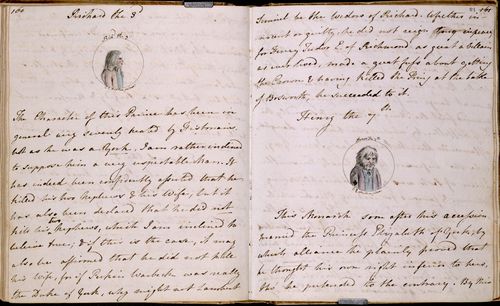 160
Richard the 3d
The Character of this Prince has been in
general very severely treated by Historians,
but as he was a York, I am rather inclined
to suppose him a very respectable Man. It
has indeed been confidently asserted that he
killed his two Nephews & his Wife, but it
has also been declared that he did not
kill his Nephews, which I am inclined to
beleive true; & if this is the case, it may
also be affirmed that he did not kill
his Wife, for if Perkin Warbeck was really
the Duke of York, why might not Lambert
161
Simnel be the Widow of Richard. Whether in
nocent or guilty, he did not reign long in peace,
for Henry Tudor E. of Richmond as great a Villain
as ever lived, made a great fuss about getting
the Crown & having killed the King at the battle
of Bosworth, he succeeded to it.
Henry the 7th
This Monarch soon after his accession
married the Princess Elizabeth of York, by
which alliance he plainly proved that
he thought his own right inferior to hers,
tho' he pretended to the contrary. By this